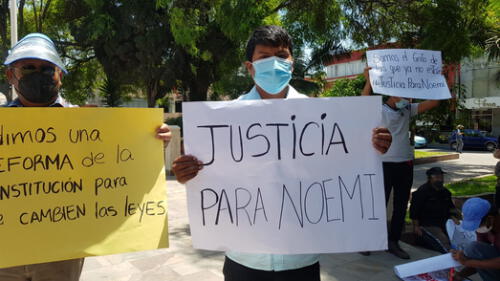 dimos una
REFORMA de la
CONSTITUCIÓN para
CAMBIEN las LEYES
JUSTICIA
PARA NOEMI
Somos el Grito de
que ya no están
Justicia Para Noemi